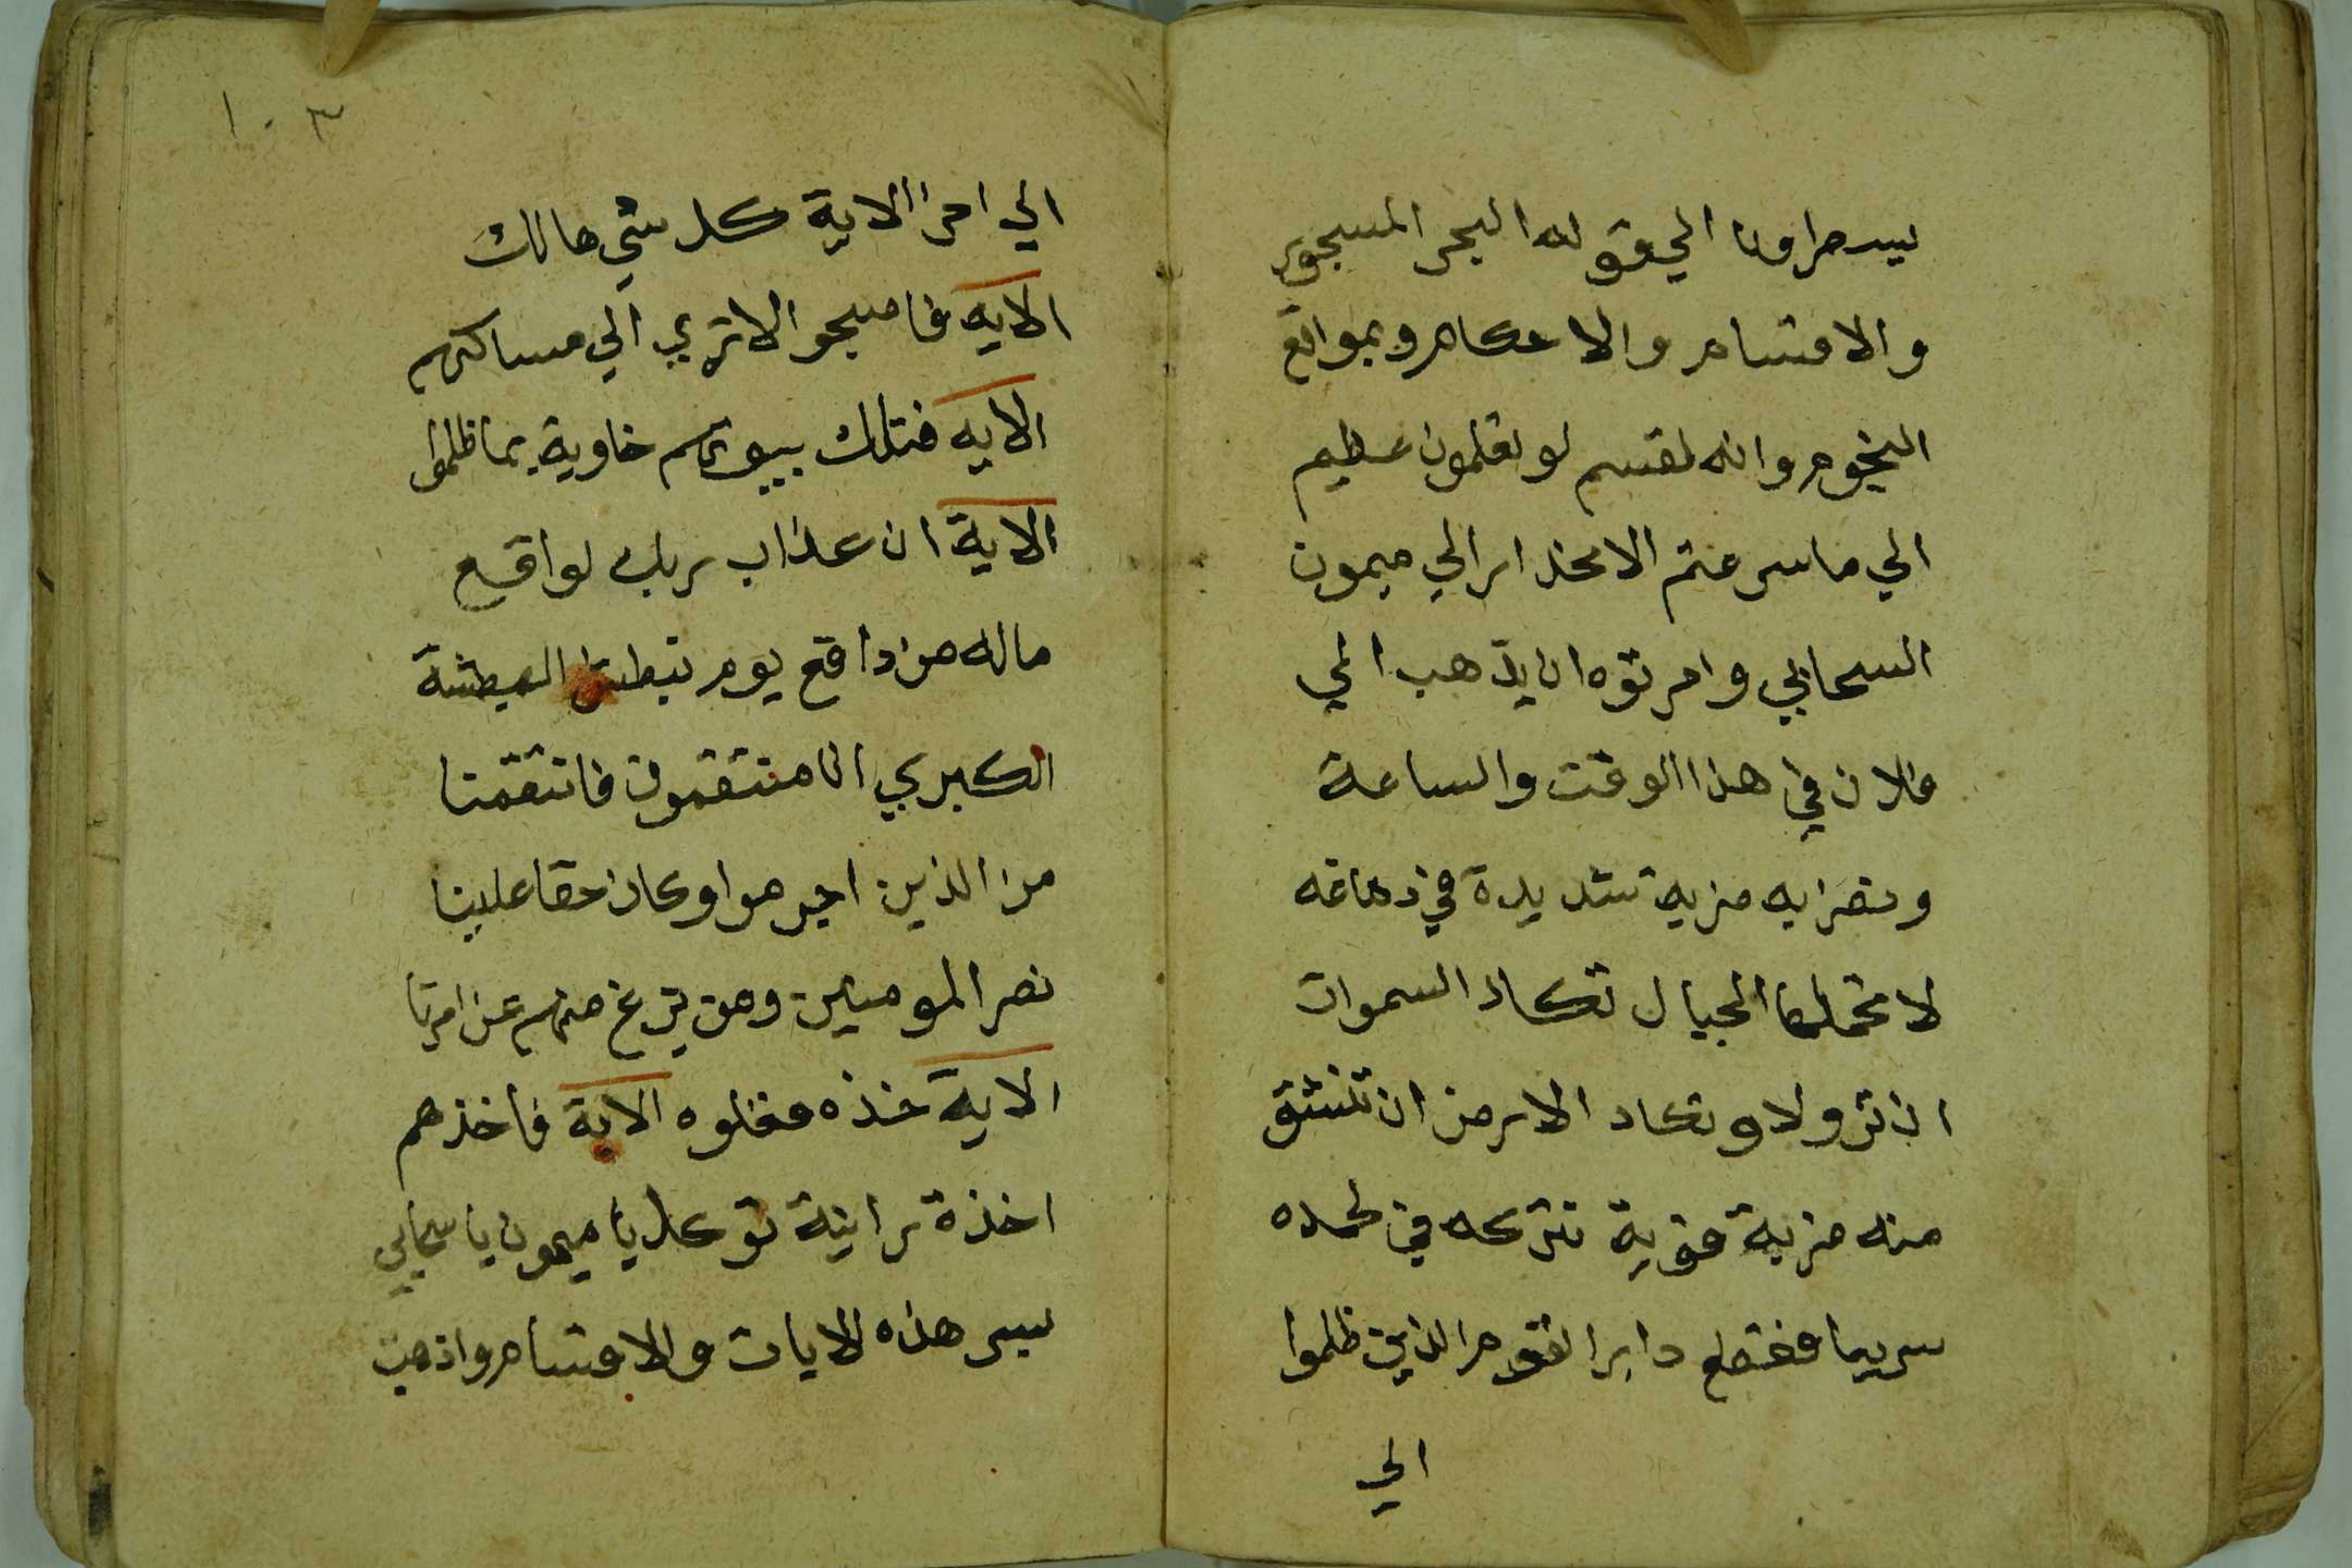 الي قوله البحر المسجور
والاقسام والاحكام وبمواقع
النجوم وانه لقسم لو تعلمون عظيم
الي ما سرعتم الانحدار الي ميمون
السحابي وامرتوه ان يذهب الي
فلان في هذا الوقت والساعة
ويضرابه ضربة شديدة في دماغه
لا تحملها الجبال تكاد السموات
ان تزولا وتكاد الارض ان تنشق
منه ضربة قوية تتركه في لحده
سريعا فقطع دابر القوم الذين ظلموا
الي
١٠٣
الي اخر الاية كل شي هالك
الايه فاصبحو الا تري الي مساكنهم
الايه فتلك بيوتهم خاوية بما ظلموا
الاية ان عذاب ربك لواقع
ماله من دافع يوم نبطش البطشة
الكبري انا منتقمون فانتقمنا
من الذين اجرموا وكان حقا علينا
نصر المومنين ومن يزغ منهم عن امرنا
الاية خذه فغلوه الاية فاخذهم
اخذة رابية توكل يا ميمون يا سحابي
بسر هذه الايات والاقسام واذهب